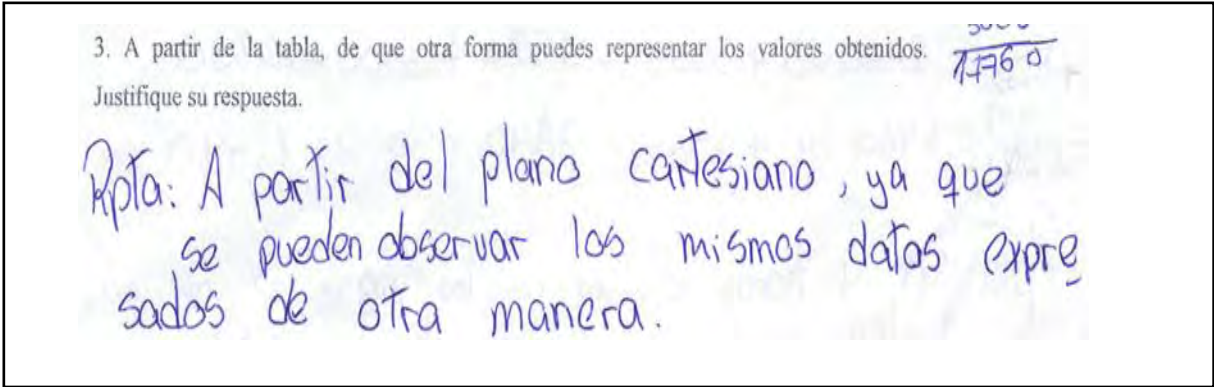 3. A partir de la tabla, de que otra forma puedes representar los valores obtenidos.
17760
Justifique su respuesta.
Rpta: A partir del plano cartesiano, ya que
se pueden observar los mismos datos expre
sados de otra manera.